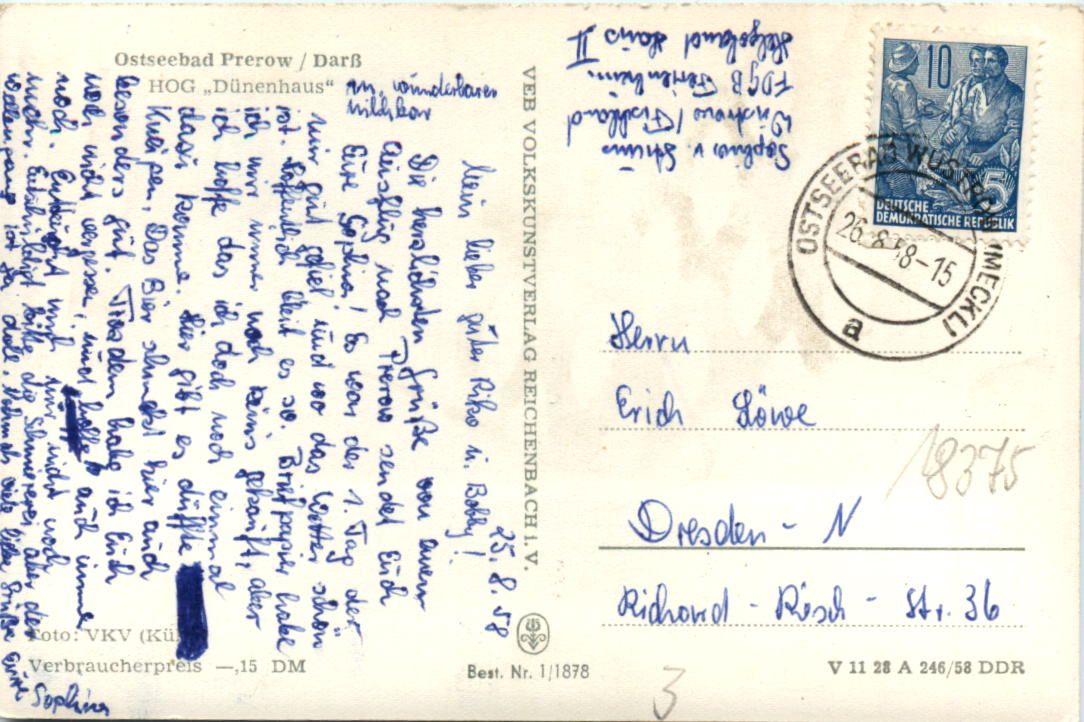 Ostseebad Prerow / Darß
HOG „Dünenhaus“
25. 8. 58
Mein lieber guter Riko u. Bobby!
Die herzlichsten Grüße von
Ausflug nach Prerow sendet Euch
Eure Sophia! Es war der 1. Tag der
mir gut gefiel und wo das Wetter schön
ist. Hoffentlich bleibt es so. Briefpapier habe
ich mir immer noch keins gekauft, aber
ich hoffe das ich doch noch einmal
dazu komme. Hier gibt es dufte
Kneipen, Das Bier schmeckt hier auch
besonders gut. Trotzdem habe ich Euch
nicht vergessen, und auch immer
noch. nicht noch
mehr. bitte die Schmiererei aber der
viele liebe Grüße Eure
Sophia
wunderbaren
Milchbar
Foto: VKV
Verbraucherpreis —,15 DM
VEB VOLKSKUNSTVERLAG REICHENBACH i. V.
Best. Nr. 1/1878
Sophia v.
Wustrow / Fischland
FDGB Ferienheim
Helgoland Haus II
10
5
DEUTSCHE
DEMOKRATISCHE REPUBLIK
OSTSEEBAD WUSTROW (MECKL)
26.8.58-15
a
Herrn
Erich Löwe
18375
Dresden - N
Richard - Rösch - Str. 36
V 11 28 A 246/58 DDR
3